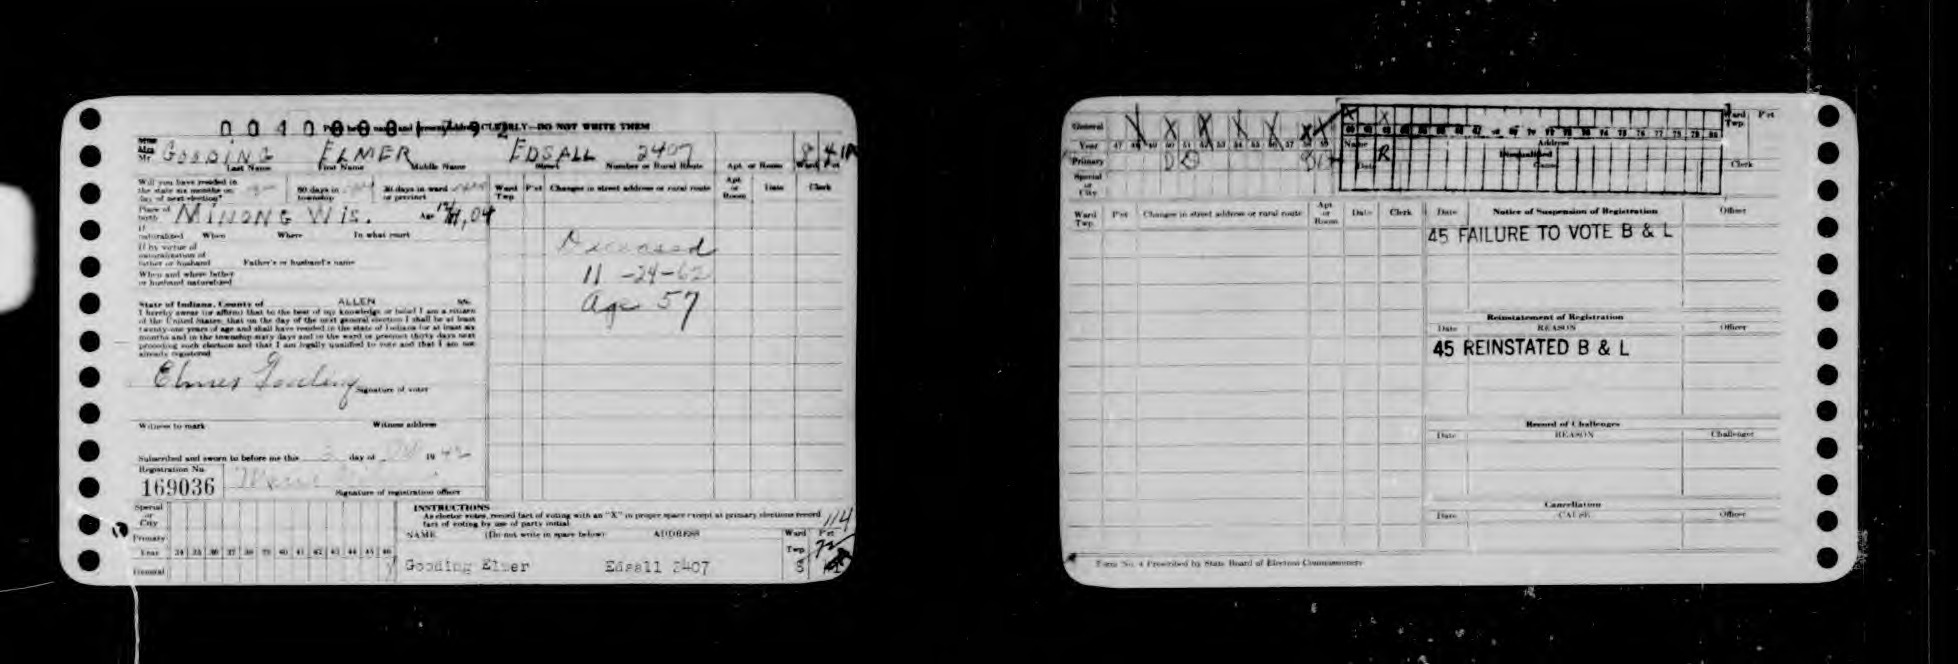 0040000 1792
Print both name and present address CLEARLY—DO NOT WRITE THEM
Miss
Mrs.
Mr. GOODING ELMER EDSALL 2407 8 41A
Last Name First Name Middle Name Street Number or Rural Route Apt. or Room Ward Pct
Will you have resided in
the state six months on
day of next election?
60 days in
township
30 days in ward
or precinct
Place of
birth MINONG WIS. Age 04
If
naturalized When Where In what court
If by virtue of
naturalization of
father or husband Father's or husband's name
When and where father
or husband naturalized
State of Indiana, County of ALLEN SS.
I hereby swear (or affirm) that to the best of my knowledge or belief I am a citizen
of the United States, that on the day of the next general election I shall be at least
twenty-one years of age and shall have resided in the state of Indiana for at least six
months and in the township sixty days and in the ward or precinct thirty days next
preceding such election and that I am legally qualified to vote and that I am not
already registered
Elmer Gooding
Signature of voter
Witness to mark Witness address
Subscribed and sworn to before me this 3 day of 19 42
Registration No.
169036
Signature of registration officer
Ward
Twp. Pct Changes in street address or rural route Apt.
or
Room Date Clerk
Deceased
11-24-62
Age 57
INSTRUCTIONS
As elector votes, record fact of voting with an "X" in proper space except at primary elections record
fact of voting by use of party initial.
Special
or
City
Primary
Year 34 35 36 37 38 39 40 41 42 43 44 45 46
General
114
NAME (Do not write in space below) ADDRESS Ward
Twp. Pct
Gooding Elmer Edsall 2407 8
General X X X X X X X X X
Year 47 48 49 50 51 52 53 54 55 56 57 58 59
Primary D D R
Special
or
City
60 61 62 63 64 65 66 67 68 69 70 71 72 73 74 75 76 77 78 79 80
Name Address
Disqualified
Date Cause
Ward
Twp. Pct
Clerk
Ward
Twp. Pct Changes in street address or rural route Apt.
or
Room Date Clerk
Date Notice of Suspension of Registration Officer
45 FAILURE TO VOTE B & L
Reinstatement of Registration
Date REASON Officer
45 REINSTATED B & L
Record of Challenges
Date REASON Challenger
Cancellation
Date CAUSE Officer
Form No. 4 Prescribed by State Board of Election Commissioners